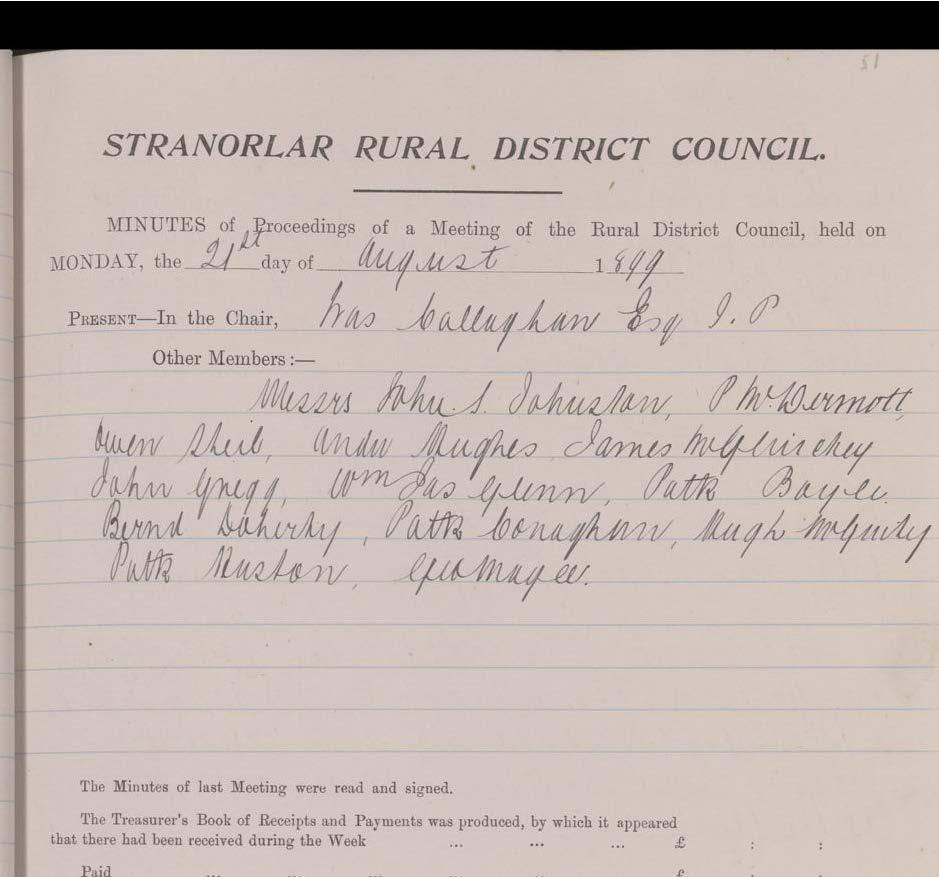 STRANORLAR RURAL DISTRICT COUNCIL.
MINUTES of Proceedings of a Meeting of the Rural District Council, held on
MONDAY, the 21st day of August 1899
PRESENT—In the Chair, Callaghan Esq J. P
Other Members:—
Messrs John S. Johnston, P McDermott
Owen Sheil, Andw Hughes James McGlinchey
John Gregg, Wm Jas Glenn, Patk Boyce
Bernd Doherty, Patk Conaghan, Hugh McGinty
Patk Huston, Geo Magee.
The Minutes of last Meeting were read and signed.
The Treasurer's Book of Receipts and Payments was produced, by which it appeared
that there had been received during the Week ... ... ... £ : :
Paid ... ... ... ... £